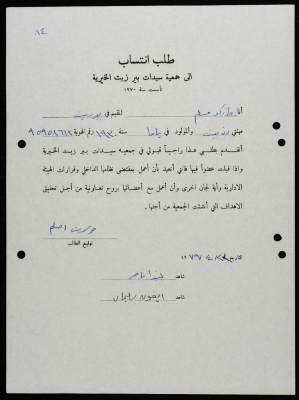 ٨٤
طلب انتساب
الى جمعية سيدات بير زيت الخيرية
تأسست سنة ١٩٧٠
أنا المقيم في بيرزيت
مهنتي والمولود في يافا سنة ١٩٣٠ رقم الهوية ٩٥٩٥٨٦١٢
أتقدم بطلبي هذا راجياً قبولي في جمعية سيدات بير زيت الخيرية
واذا قبلت عضواً فيها فاني أتعهد بأن أعمل بمقتضى نظامها الداخلي وقرارات الهيئة
الادارية وأية لجان اخرى وأن أعمل مع أعضائها بروح تعاونية من أجل تحقيق
الاهداف التي أنشئت الجمعية من أجلها.
توقيع الطالب
التاريخ ١٩٧٧
شاهد
شاهد